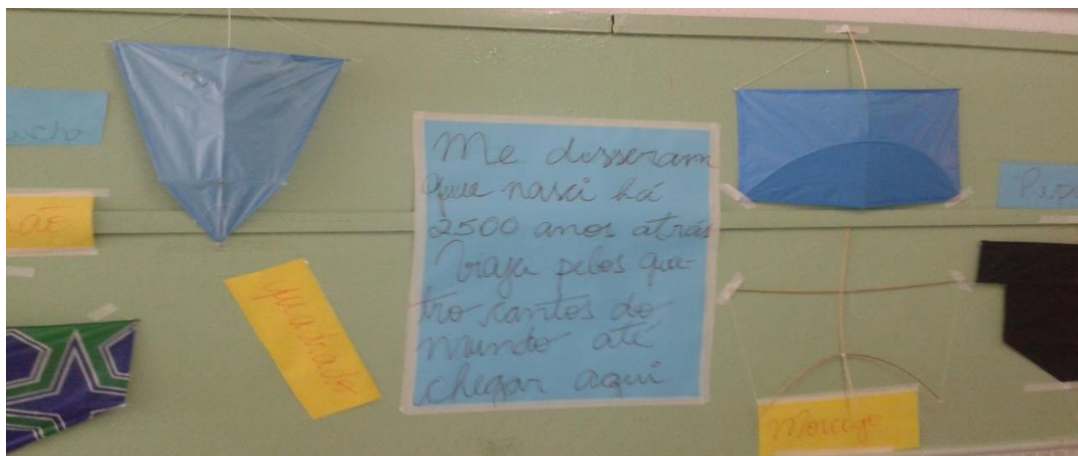 Me disseram
que nasci há
2500 anos atrás
Viajei pelos qua-
tro cantos do
mundo até
chegar aqui
quadrado
Morcego